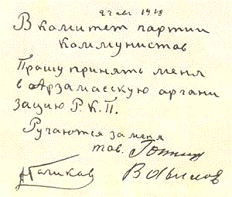 27 авг 1918
В комитет партии
Коммунистов
Прошу принять меня
в Арзамасскую органи
зацию Р.К.П.
Ругаются за меня
тов.
Голиков